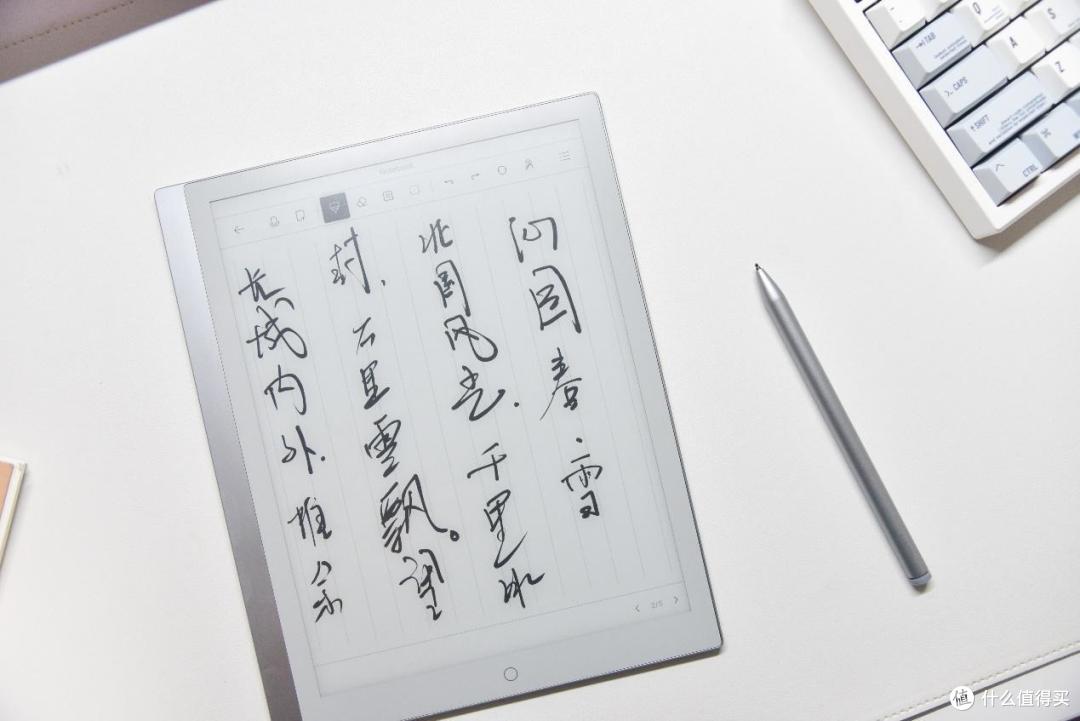 Notebook
沁园春·雪
北国风光,千里冰
封,万里雪飘。望
长城内外,惟余
2/5
Q
S
TAB
A
CAPS
Z
SHIFT
CTRL
值 什么值得买